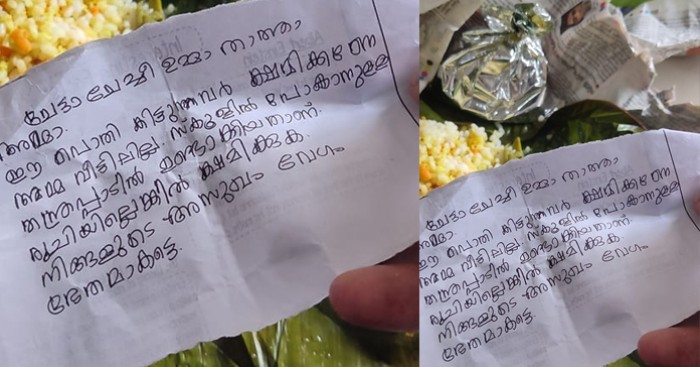 ചേട്ടാ ചേച്ചി ഉമ്മാ താത്താ
അമ്മാ.
ഈ പൊതി കിട്ടുന്നവർ ക്ഷമിക്കണേ
അമ്മ വീട്ടിലില്ല. സ്കൂളിൽ പോകാനുള്ള
തത്രപ്പാടിൽ ഉണ്ടാക്കിയതാണ്.
രുചിയില്ലെങ്കിൽ ക്ഷമിക്കുക.
നിങ്ങളുടെ അസുഖം വേഗം
ഭേതമാകട്ടെ.
ചേട്ടാ ചേച്ചി ഉമ്മാ താത്താ
അമ്മാ.
ഈ പൊതി കിട്ടുന്നവർ ക്ഷമിക്കണേ
അമ്മ വീട്ടിലില്ല. സ്കൂളിൽ പോകാനുള്ള
തത്രപ്പാടിൽ ഉണ്ടാക്കിയതാണ്.
രുചിയില്ലെങ്കിൽ ക്ഷമിക്കുക.
നിങ്ങളുടെ അസുഖം വേഗം
ഭേതമാകട്ടെ.